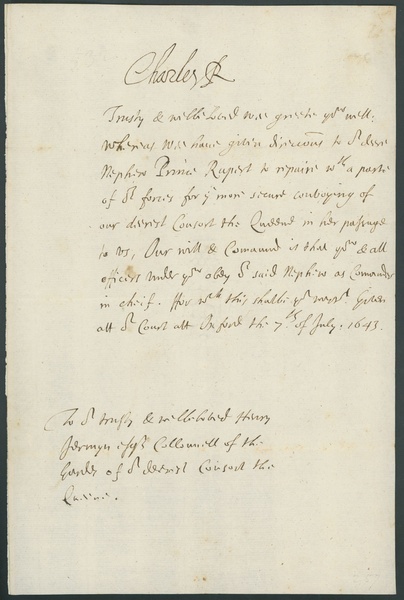 Charles R
Trusty & wellbeloved wee greete you well.
Whereas wee have given direccons to or deere
Nephew Prince Rupert to repaire wth a parte
of or forces for ye more secure convoying of
our deerest Consort the Queene in her passage
to us, Our will & Comaund is that you & all
officers under you obey or said Nephew as Comander
in cheif. ffor wch this shalbe yor warrt. Given
att or Court att Oxford the 7th of July. 1643.
To or trusty & wellbeloved Henry
Jermyn esqr Collonnell of the
Guards of or deerest Consort the
Queene.